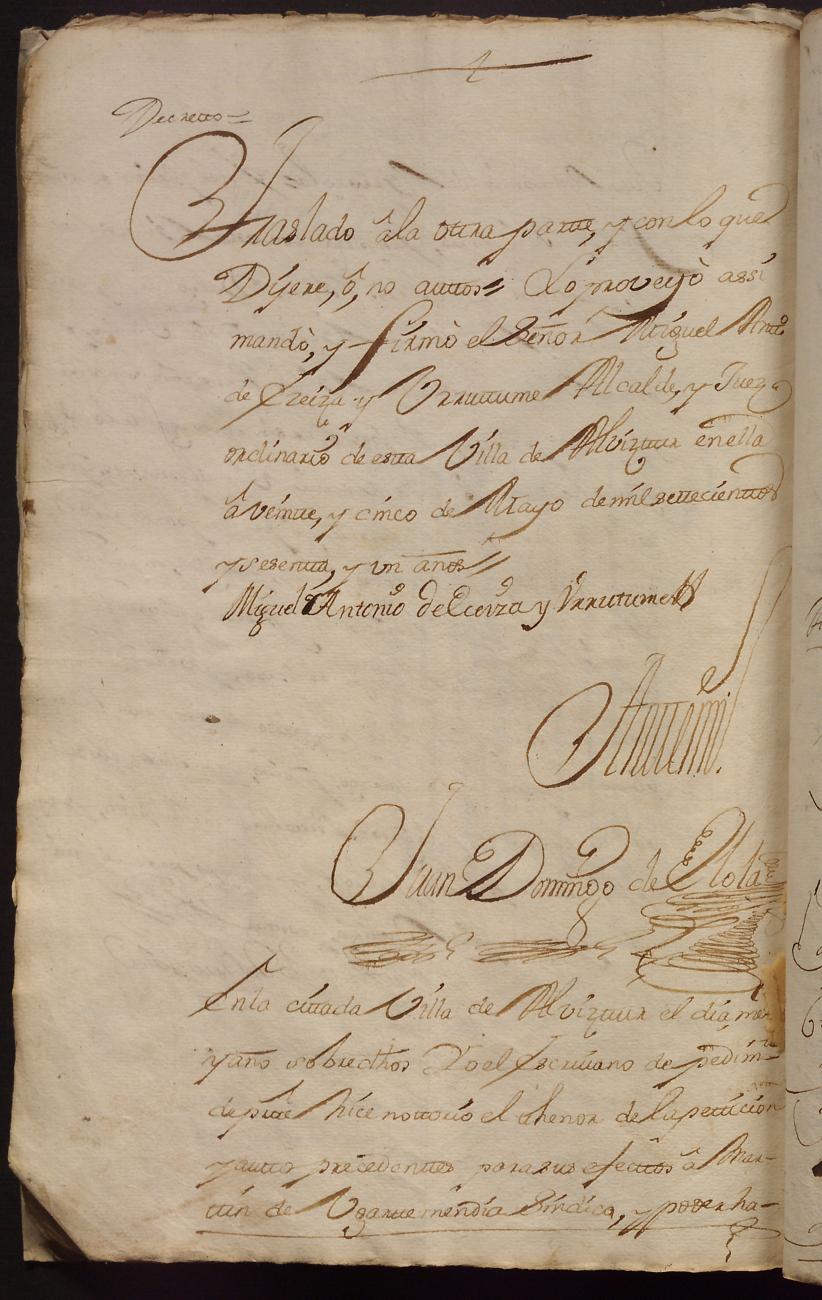 Decretto=
Traslado â la otra parte, y con lo que
Dijere, ô, no auttos= Lo proveyò assi
mandò, y firmò el Señor Miguel Antt.º
de Ereiza y Urrutume Alcalde, y Juez
ordinario de esta Villa de Alviztur en ella
â veinte, y cinco de Mayo de mil settecienttos
y sesenta, y un años=
Miguel Antonio de Ereiza y Vrrutume
Antemi.
Juan Domingo de
En la cittada Villa de Alviztur el dia, mes
y año sobredthos Yo el Escrivano de pedim.to
de partte hice nottorio el thenor de la petticion
y autto precedentes para sus efecttos â Mar-
tin de Ugartemendia Sindico, y poder ha-